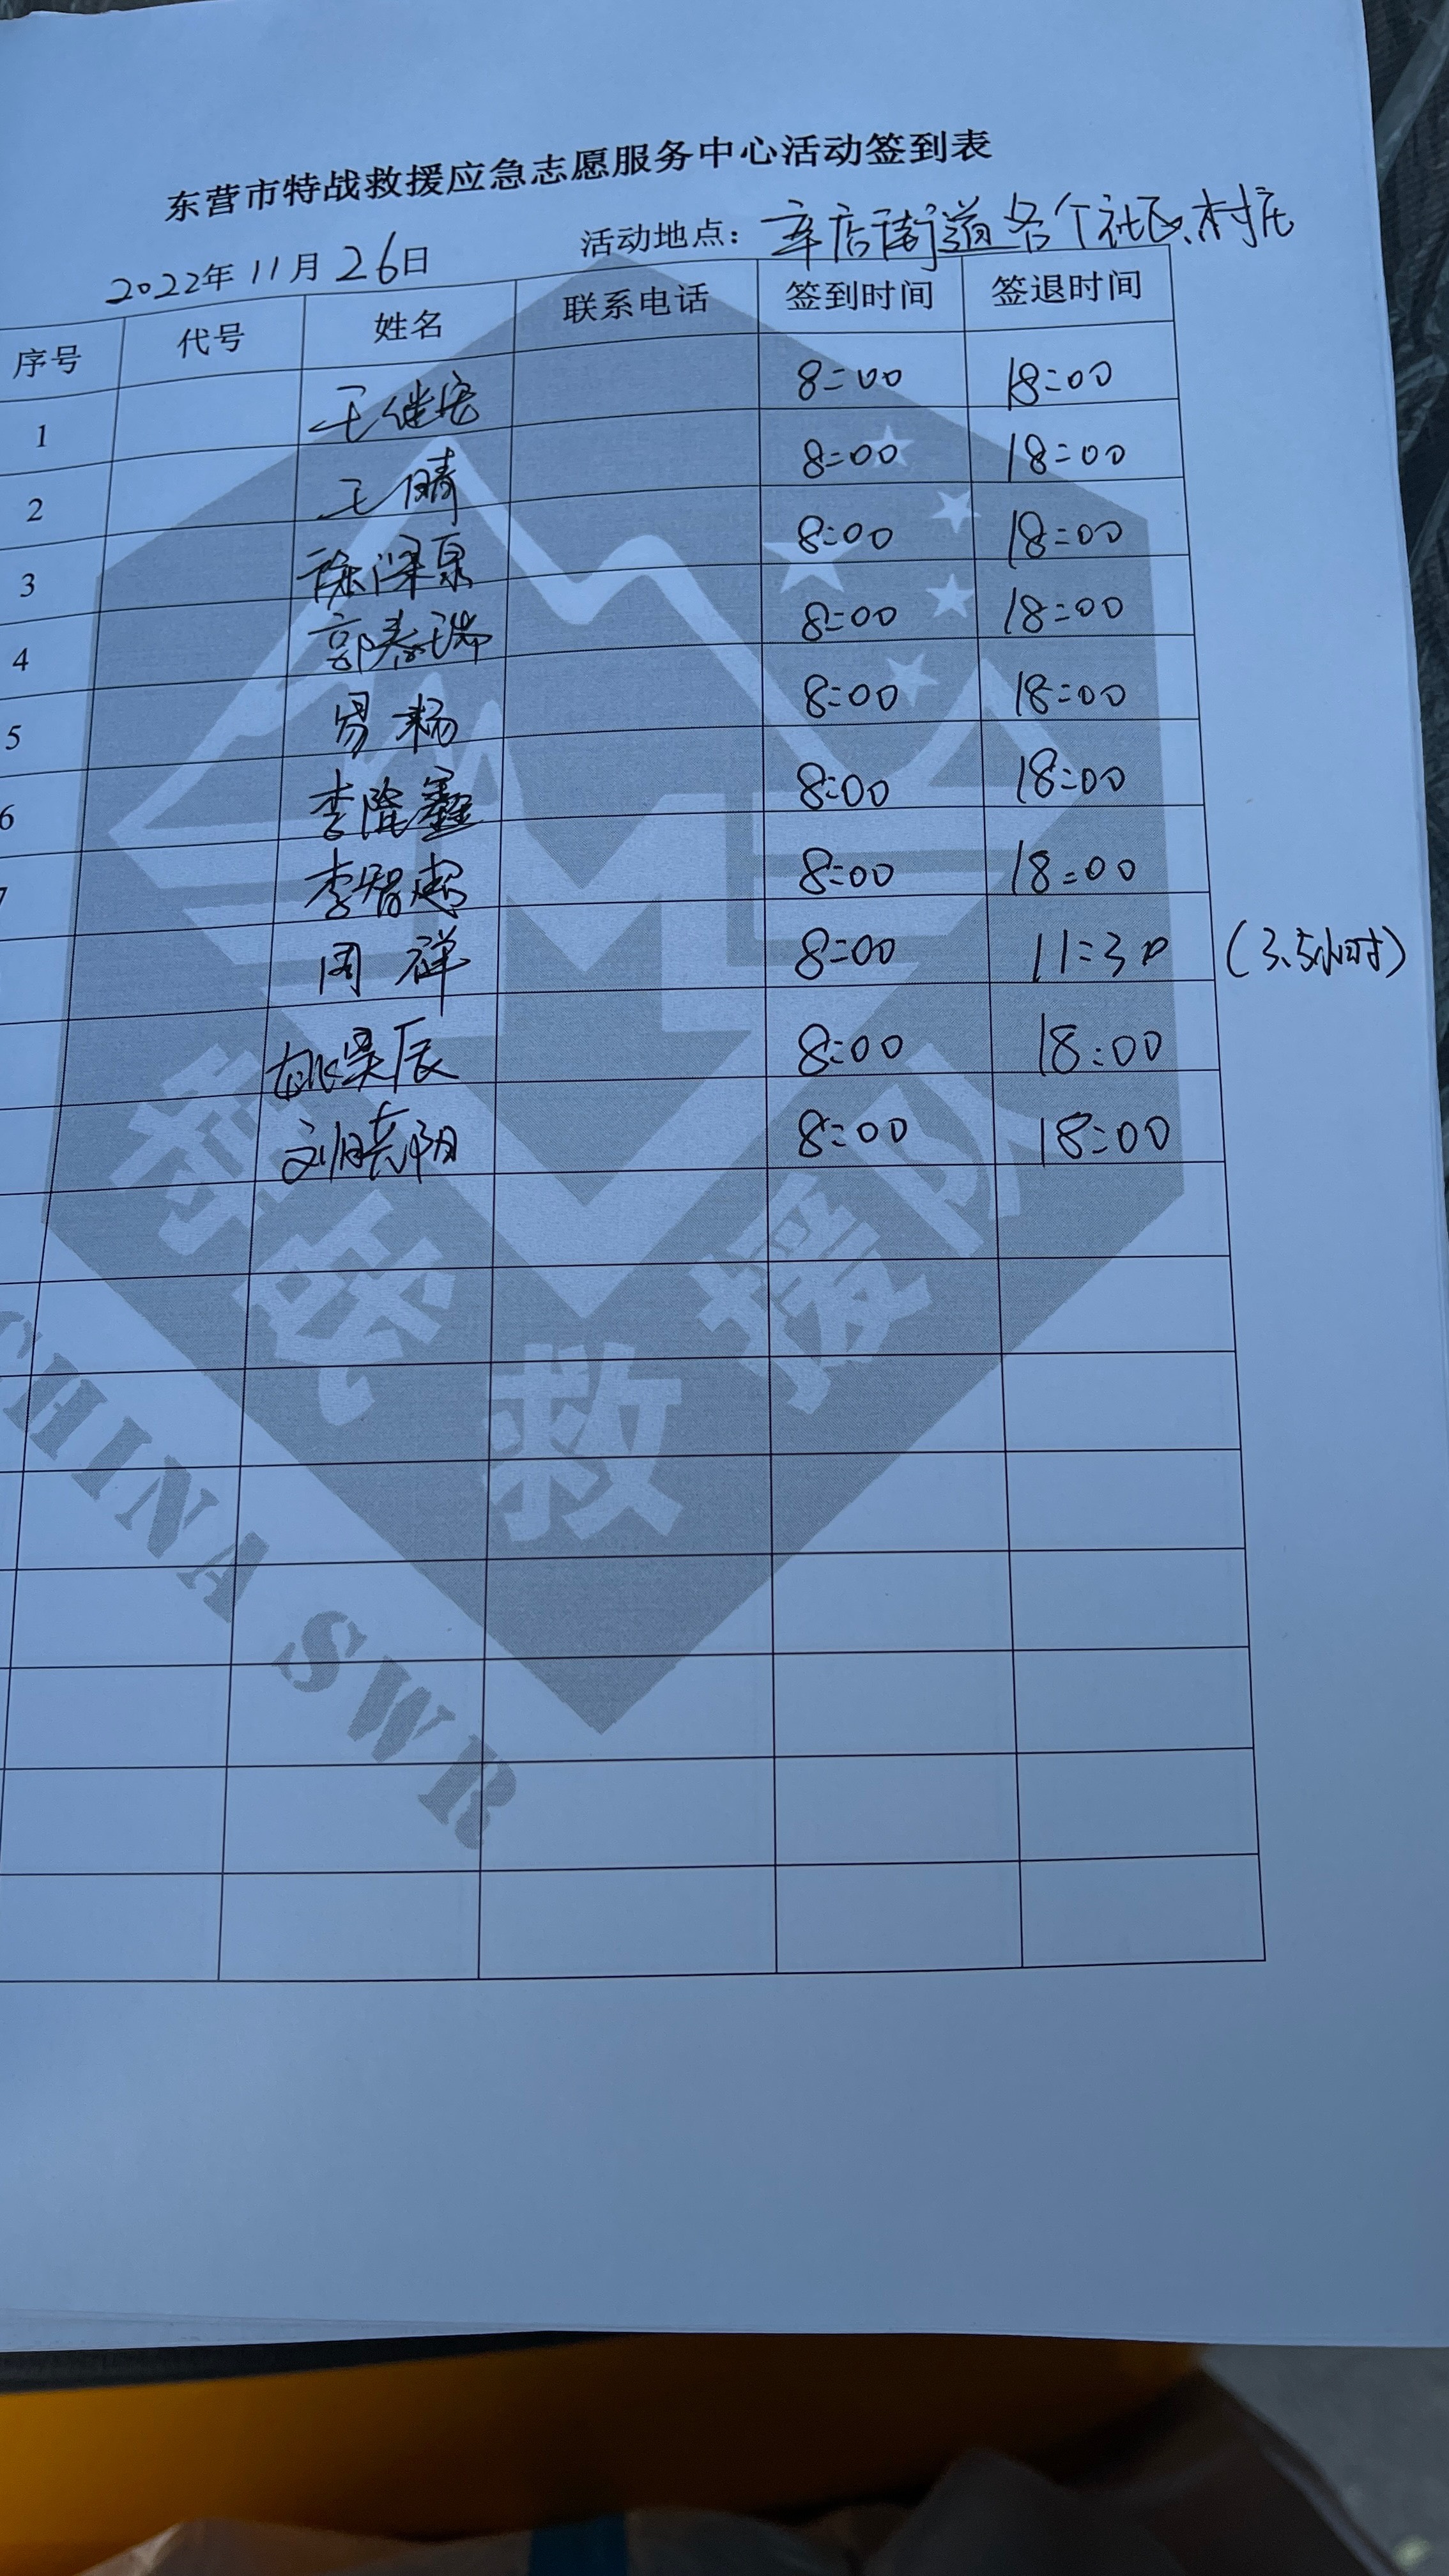 东营市特战救援应急志愿服务中心活动签到表
2022年11月26日 活动地点：辛店街道各个社区、村庄
序号 代号 姓名 联系电话 签到时间 签退时间
1 王继宏 8:00 18:00
2 王晴 8:00 18:00
3 8:00 18:00
4 郭泰瑞 8:00 18:00
5 易杨 8:00 18:00
6 李隆鑫 8:00 18:00
7 李智超 8:00 18:00
周祥 8:00 11:30 (3.5小时)
姚昊辰 8:00 18:00
刘晓阳 8:00 18:00
特战救援队
CHINA SWR